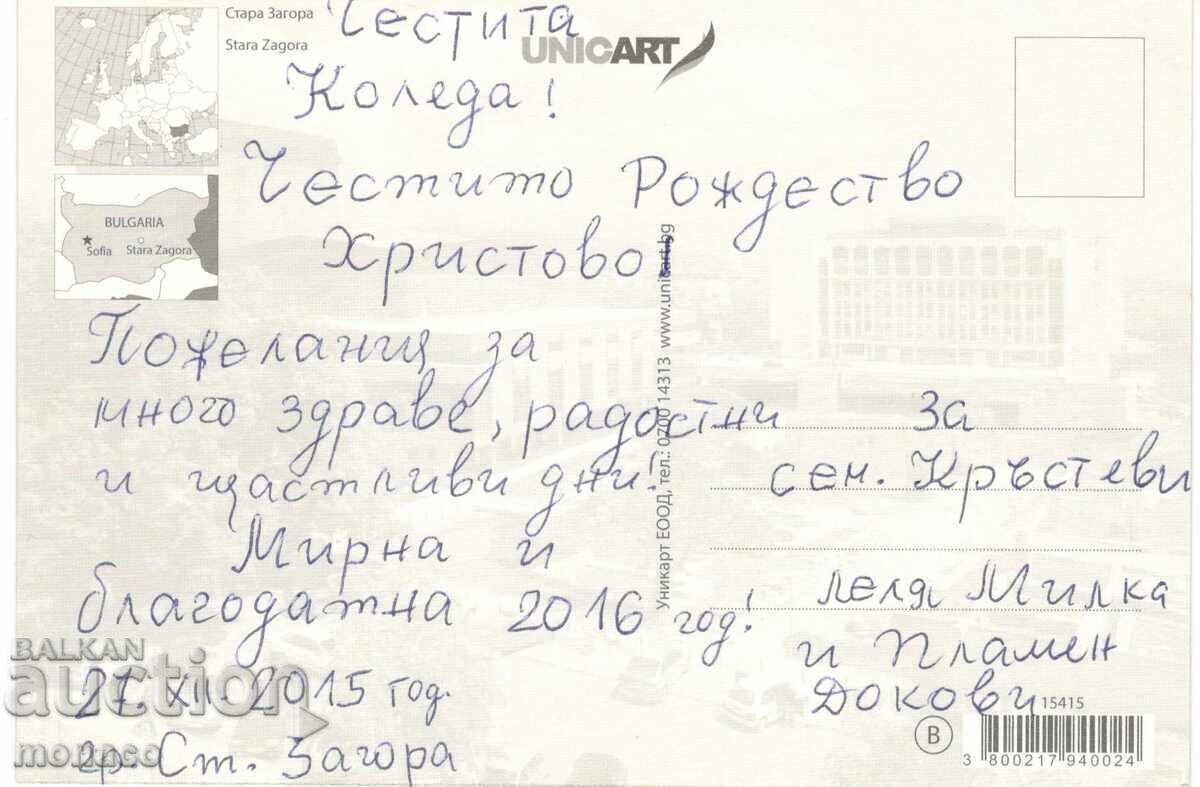 Стара Загора
Stara Zagora
BULGARIA
Sofia
Stara Zagora
UNICART
Честита
Коледа!
Честито Рождество
Христово!
Пожелания за
много здраве, радостни
и щастливи дни!
Мирна и
благодатна 2016 год!
27. XII. 2015 год.
гр. Ст. Загора
Уникарт ЕООД, тел.: 0700 14313 www.unicart.bg
За
сем. Кръстеви
леля Милка
и Пламен
Докови
15415
B
3 800217 940024
BALKAN
auction
monaco